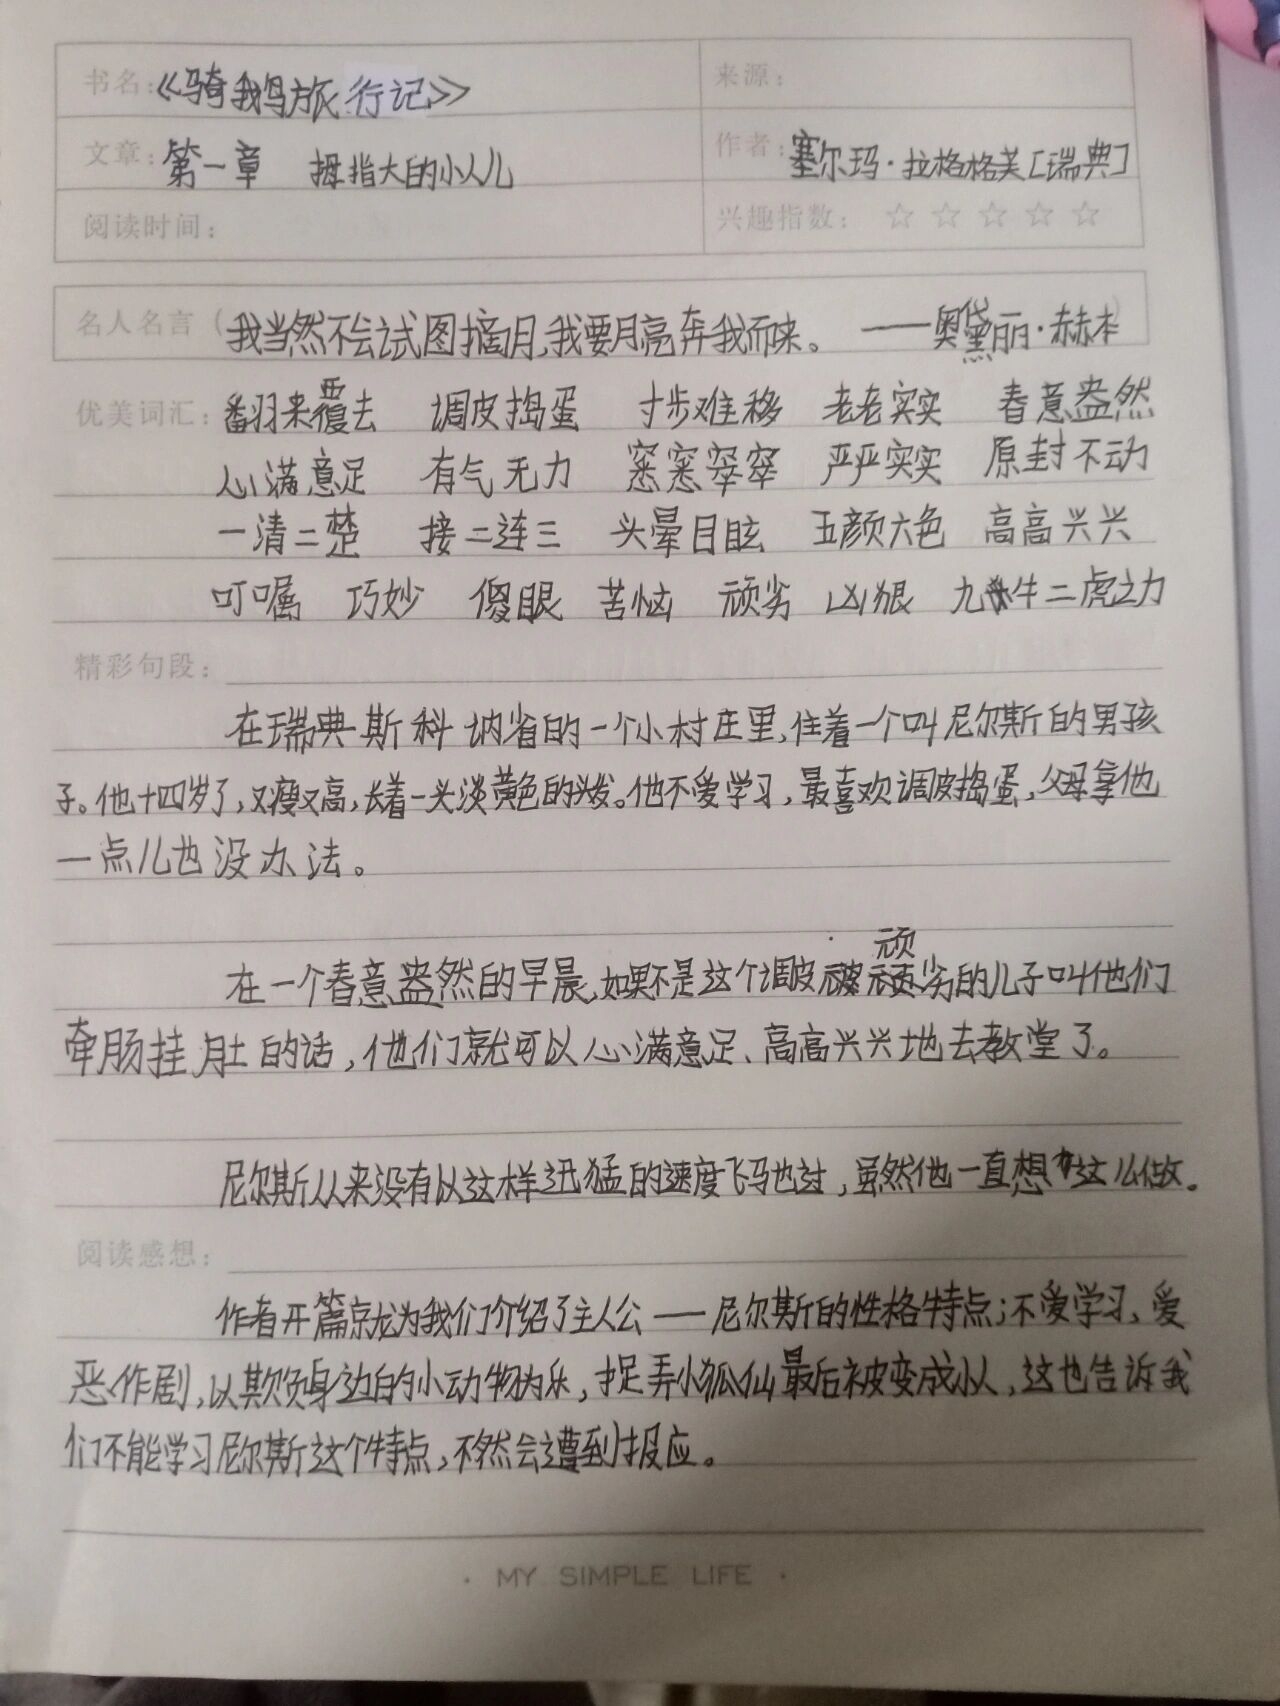 书名：《骑鹅旅行记》
来源：
文章：第一章 拇指大的小人儿
作者：塞尔玛·拉格格芙［瑞典］
阅读时间：
兴趣指数：☆ ☆ ☆ ☆ ☆
名人名言（我当然不会试图摘月，我要月亮奔我而来。 ——奥黛丽·赫本）
优美词汇：翻来覆去 调皮捣蛋 寸步难移 老老实实 春意盎然
心满意足 有气无力 窸窸窣窣 严严实实 原封不动
一清二楚 接二连三 头晕目眩 五颜六色 高高兴兴
叮嘱 巧妙 傻眼 苦恼 顽劣 凶狠 九牛二虎之力
精彩句段：
在瑞典斯科讷省的一个小村庄里，住着一个叫尼尔斯的男孩
子。他十四岁了，又瘦又高，长着一头淡黄色的头发。他不爱学习，最喜欢调皮捣蛋，父母拿他
一点儿也没办法。
在一个春意盎然的早晨，如果不是这个调皮顽劣的儿子叫他们
牵肠挂肚的话，他们就可以心满意足、高高兴兴地去教堂了。
尼尔斯从来没有以这样迅猛的速度飞驰过，虽然他一直想这么做。
阅读感想：
作者开篇就为我们介绍了主人公——尼尔斯的性格特点；不爱学习、爱
恶作剧，以欺负身边的小动物为乐，捉弄小狐仙最后被变成小人，这也告诉我
们不能学习尼尔斯这个特点，不然会遭到报应。
· MY SIMPLE LIFE ·